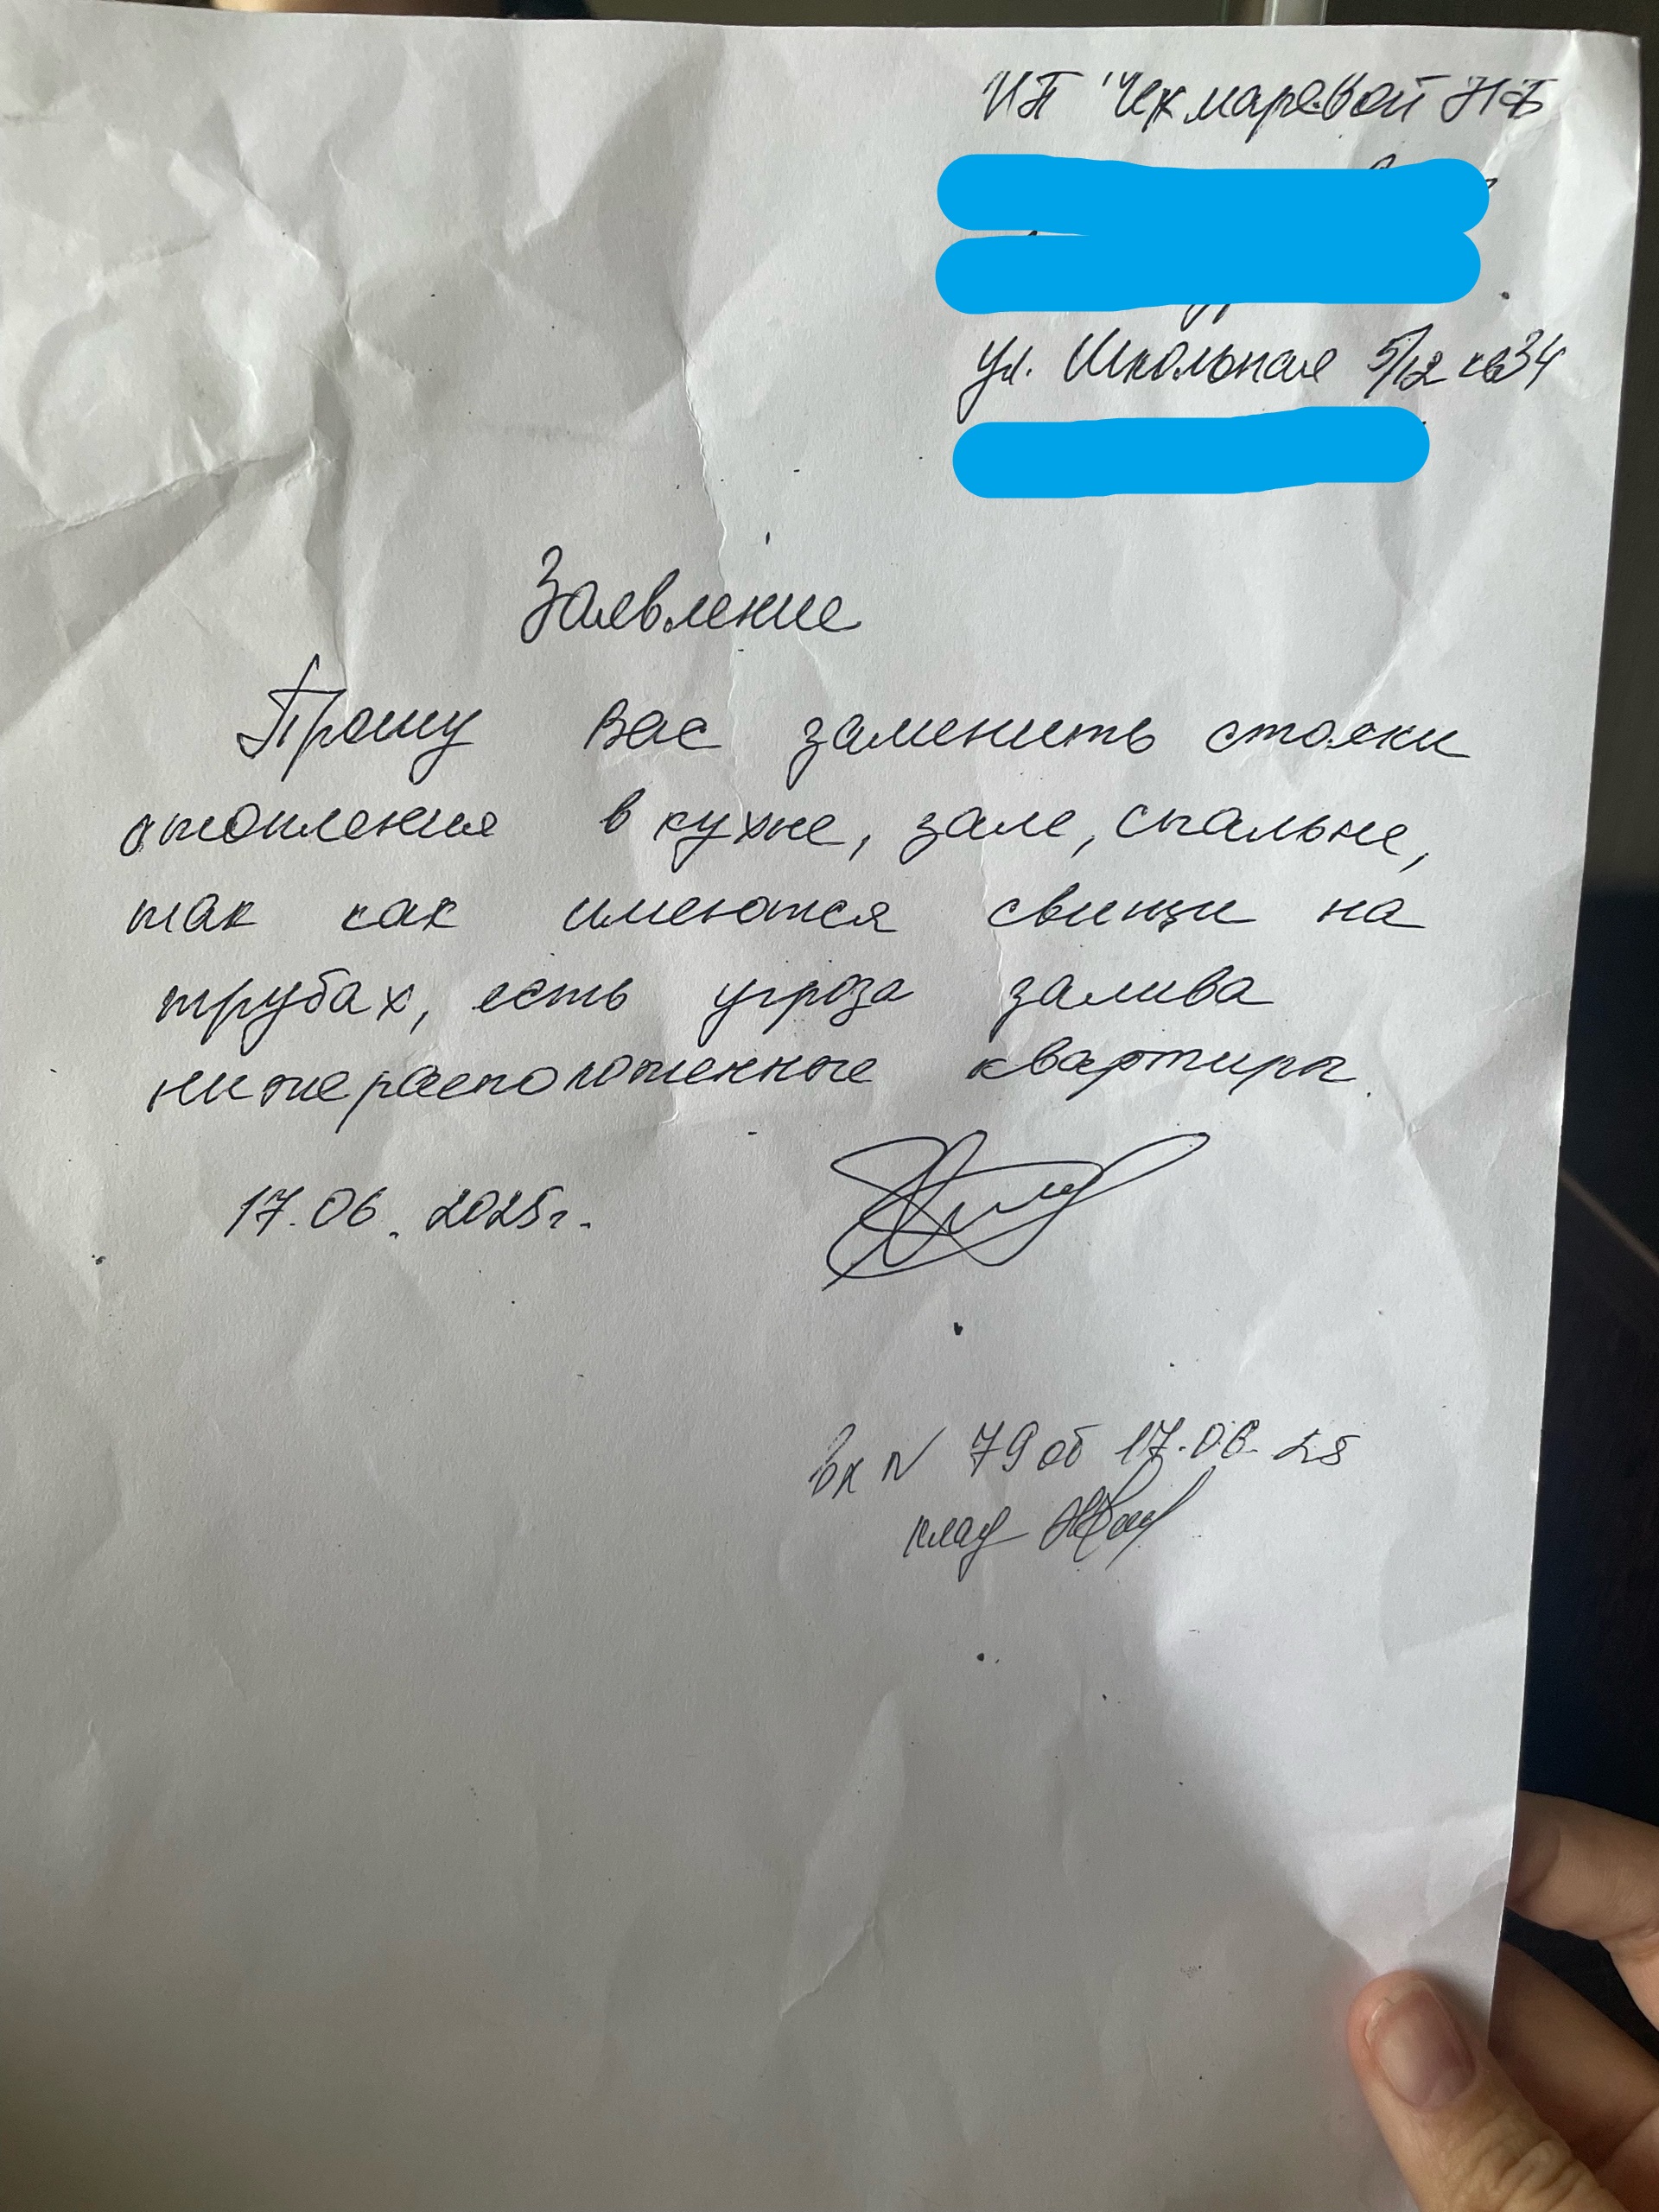 ИП Чекмаревой НБ
ул. Школьная 5/12 кв34
Заявление
Прошу Вас заменить стояки
отопления в кухне, зале, спальне,
так как имеются свищи на
трубах, есть угроза залива
нижерасположенные квартиры.
17.06.2025г.
вх N 79 от 17.06.25